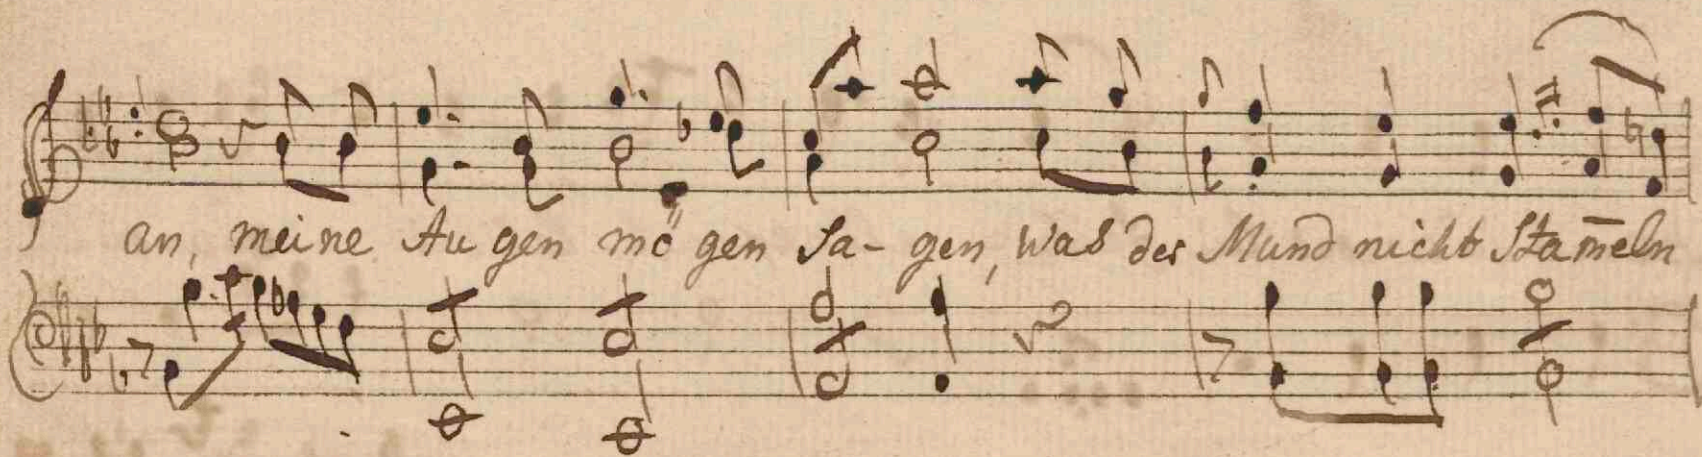 an, meine Au gen mö gen Sa- gen, was der Mund nicht Stam̅eln